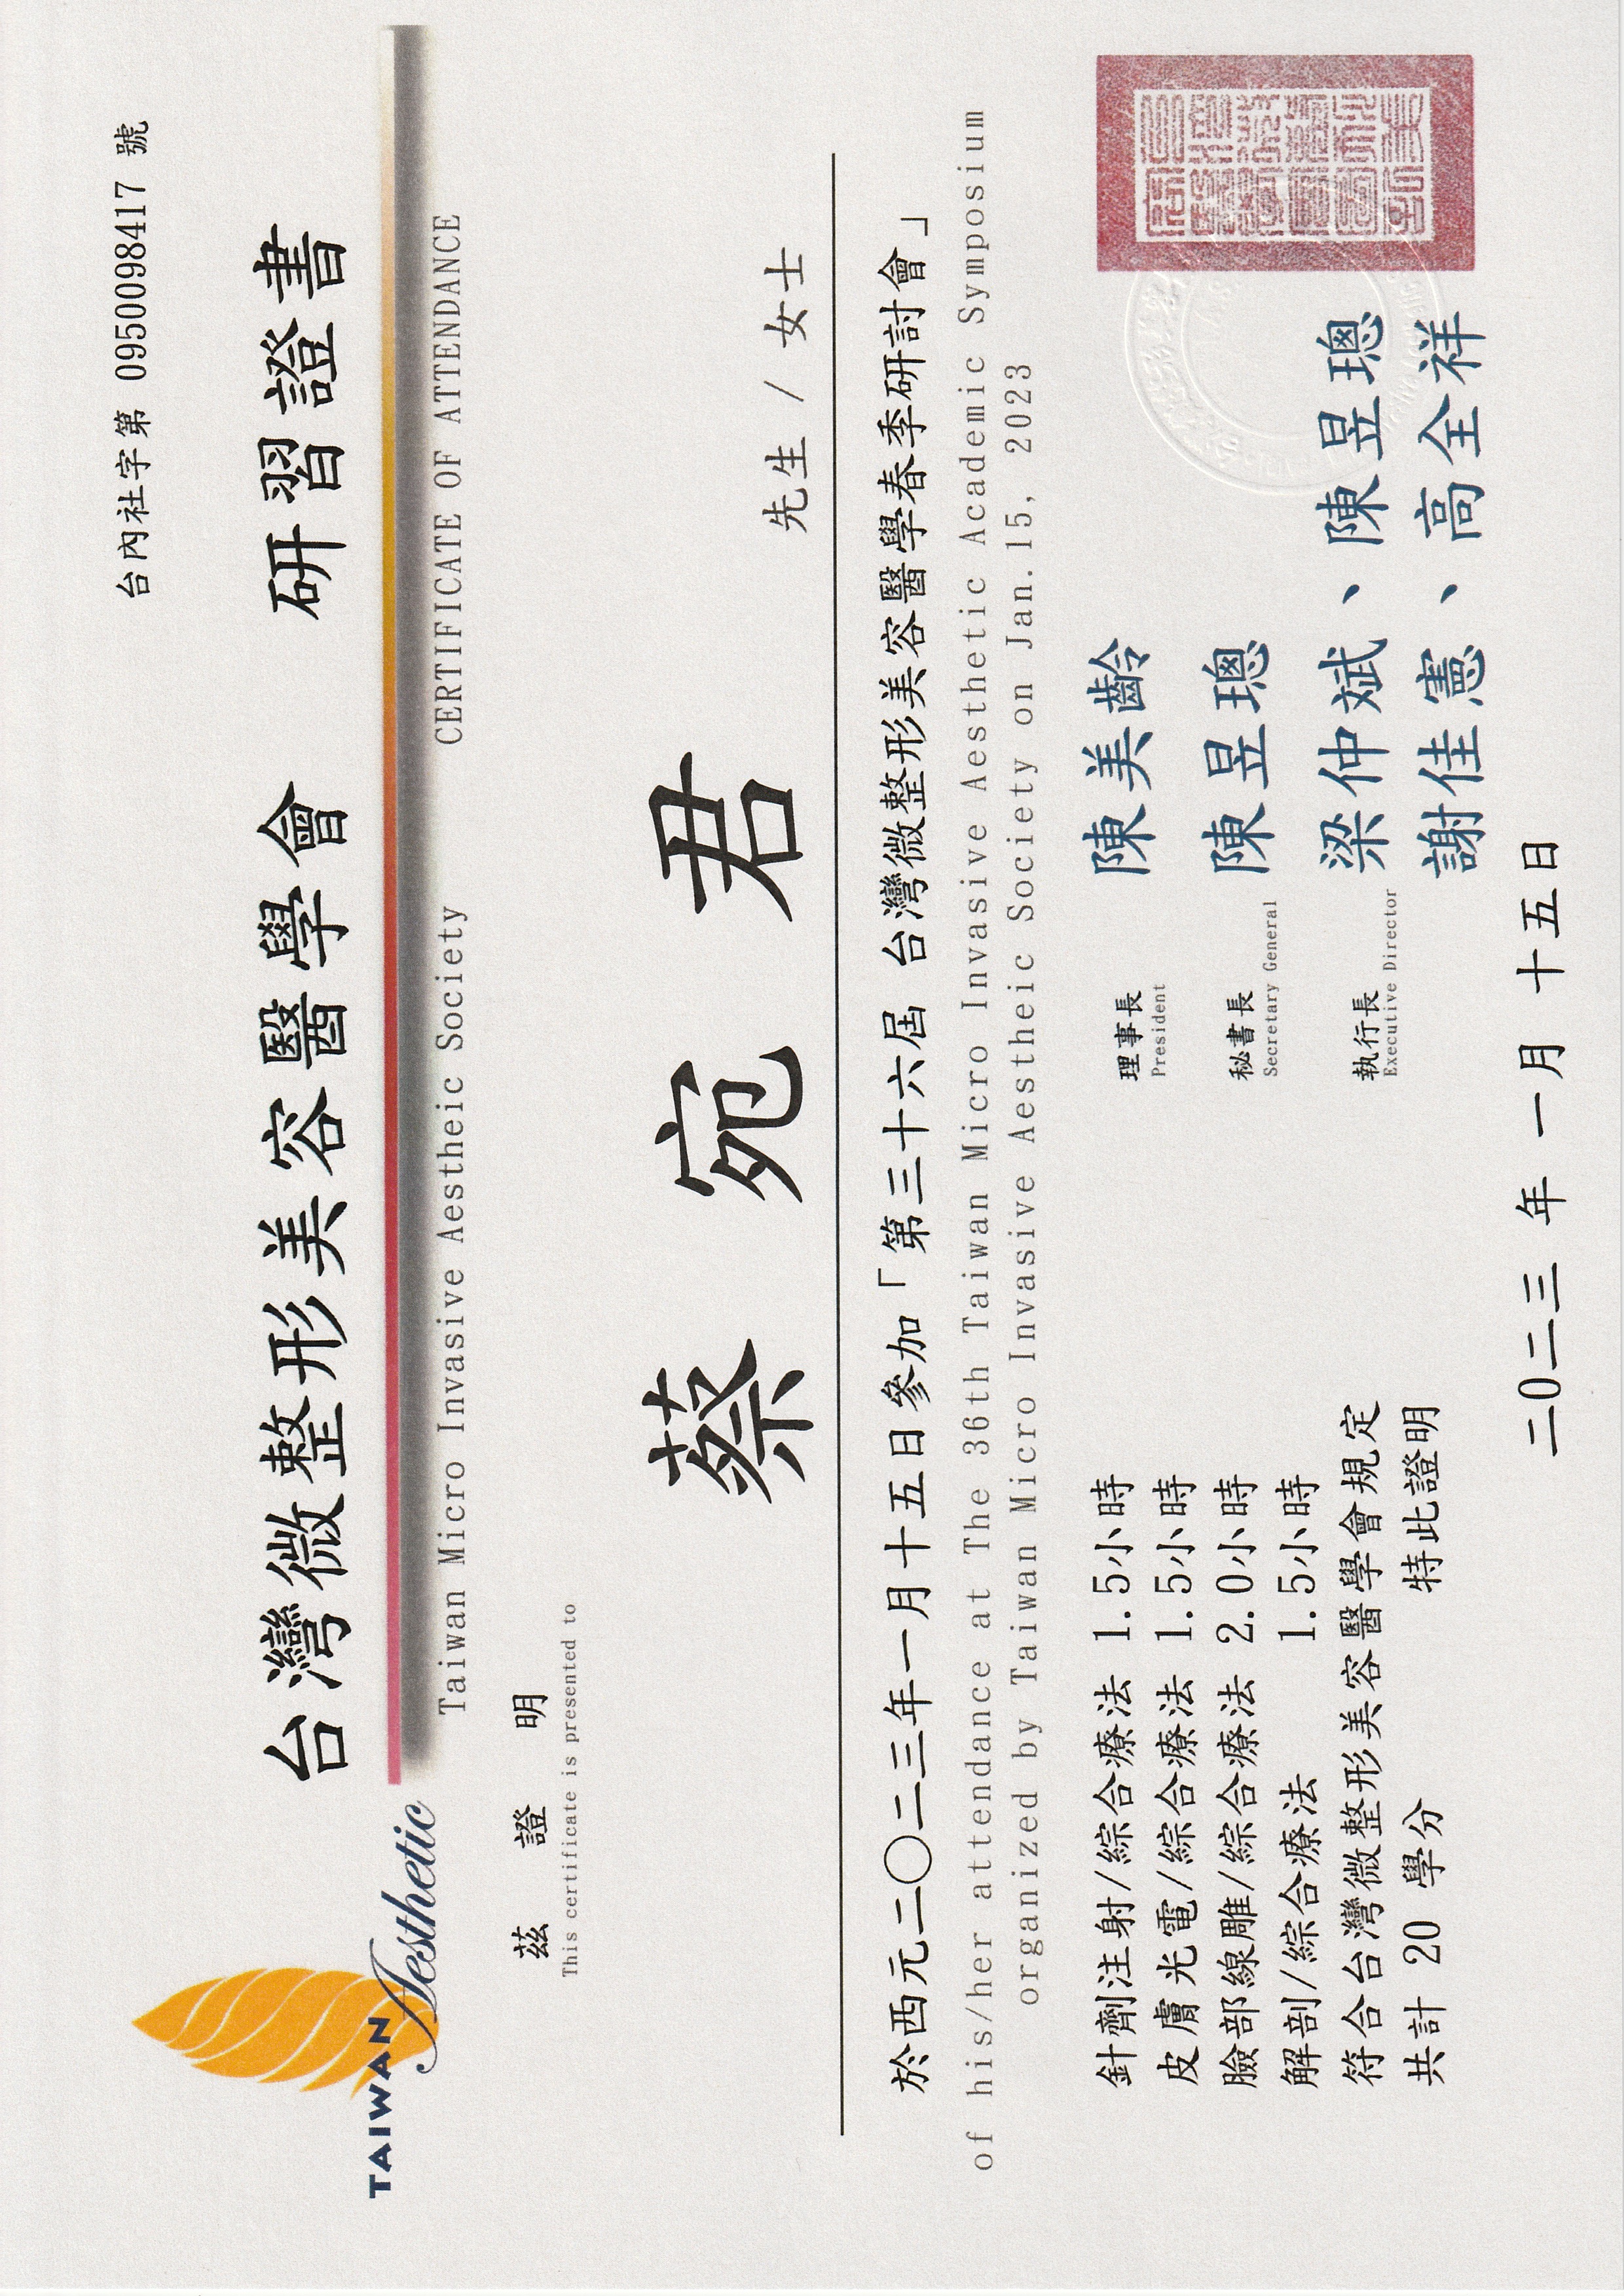 台內社字第 0950098417 號
TAIWAN Aesthetic
台灣微整形美容醫學會 研習證書
Taiwan Micro Invasive Aestheic Society CERTIFICATE OF ATTENDANCE
茲 證 明
This certificate is presented to
蔡 宛 君 先生 / 女士
於西元二〇二三年一月十五日參加「第三十六屆 台灣微整形美容醫學春季研討會」
of his/her attendance at The 36th Taiwan Micro Invasive Aesthetic Academic Symposium
organized by Taiwan Micro Invasive Aestheic Society on Jan.15, 2023
針劑注射/綜合療法 1.5小時
皮膚光電/綜合療法 1.5小時
臉部線雕/綜合療法 2.0小時
解剖/綜合療法 1.5小時
符合台灣微整形美容醫學會規定
共計 20 學分 特此證明
理事長 陳美齡
President
秘書長 陳昱璁
Secretary General
執行長 梁仲斌、陳昱璁
Executive Director
謝佳憲、高全祥
二〇二三 年 一 月 十 五 日